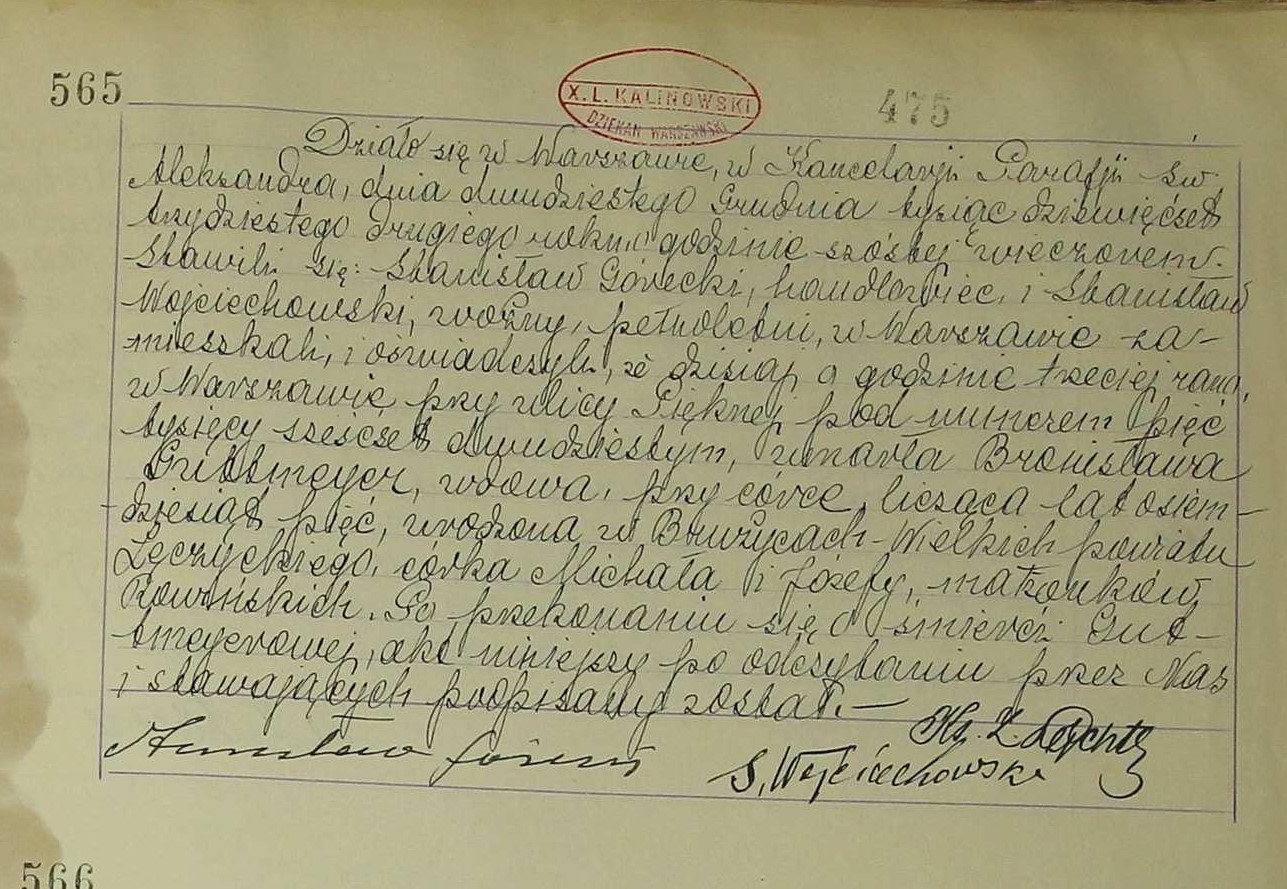 565
X. L. KALINOWSKI
DZIEKAN WARSZAWSKI
475
Działo się w Warszawie, w Kancelarji Parafji św.
Aleksandra, dnia dwudziestego Grudnia tysiąc dziewięćset
trzydziestego drugiego roku o godzinie szóstej wieczorem.
Stawili się: Stanisław Górecki, handlowiec, i Stanisław
Wojciechowski, woźny, pełnoletni, w Warszawie za-
mieszkali, i oświadczyli, że dzisiaj o godzinie trzeciej rano,
w Warszawie przy ulicy Pięknej pod numerem pięć
tysięcy sześćset dwudziestym, umarła Bronisława
Guttmeyer, wdowa, przy córce, licząca lat osiem-
dziesiąt pięć, urodzona w Wielkich powiatu
Łęczyckiego, córka Michała i Józefy, małżonków
Po przekonaniu się o śmierci Gut-
tmeyerowej, akt niniejszy po odczytaniu przez Nas
i stawających podpisany został.—
Ks. Z.
Stanisław Górecki
S. Wojciechowski
566